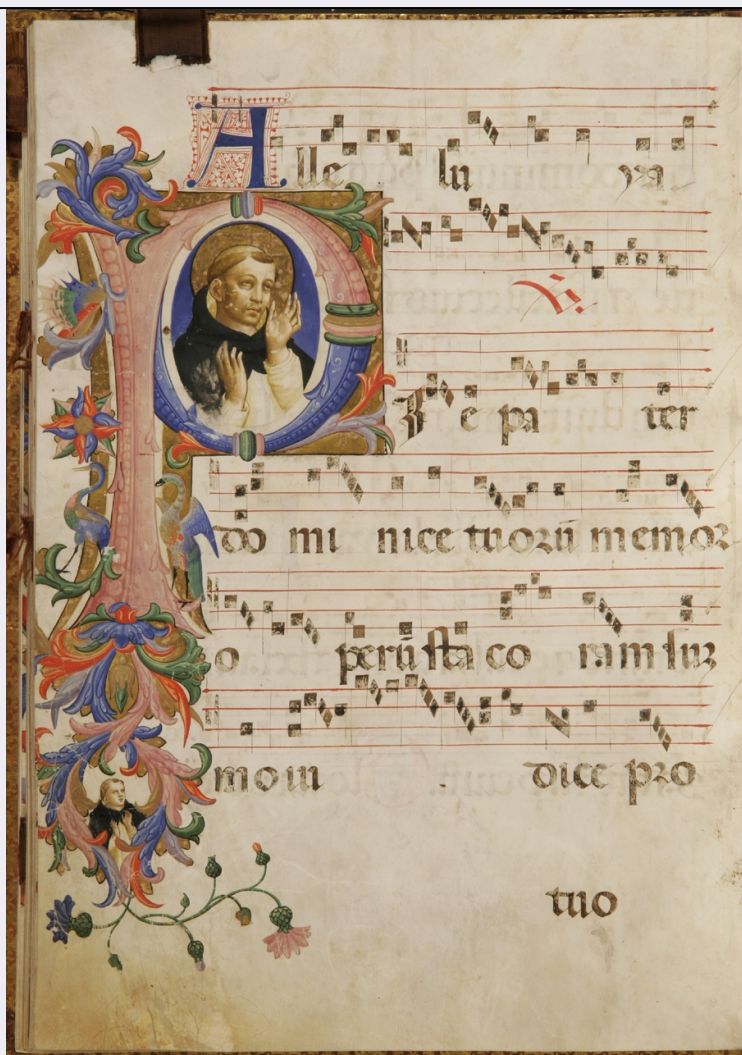 A lle lu ya
℣.
P I e pa ter
do mi nice tuorū memor
o perū sta co ram suꝫ
mo iu dice pro
tuo